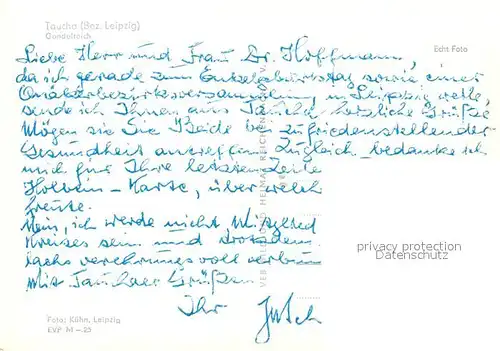 Taucha (Bez. Leipzig)
Gondelteich
Echt Foto
Liebe Herr und Frau Dr. Hoffmann,
da ich gerade zum Enkelgeburtstag sowie einer
in Leipzig weile,
sende ich Ihnen aus Taucha herzliche Grüße
Mögen sie Sie Beide bei zufriedenstellender
Gesundheit antreffen. Zugleich bedanke ich
mich für Ihre letzten Zeile
Holbein-Karte, über welch
freute.
Nein, ich werde nicht Mitglied
Kreises sein und trotzdem
verehrungsvoll verbun
Mit Tauchaer Grüßen
Ihr
privacy protection
Datenschutz
VEB HEIMAT REICH
Foto: Kühn, Leipzig
EVP M -.25